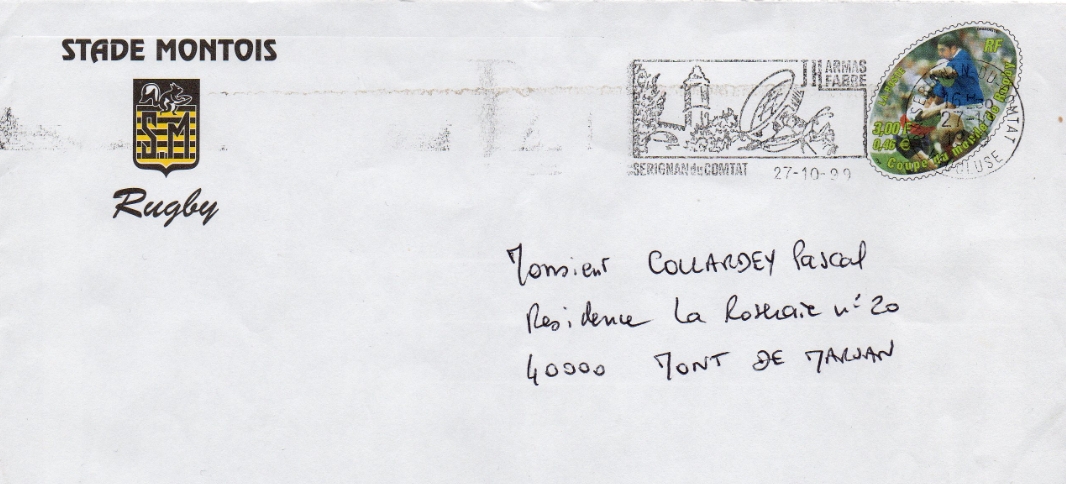 STADE MONTOIS
S.M
Rugby
HARMAS
FABRE
SERIGNAN du COMTAT
27-10-99
RF
3,00 F
0,46 €
Coupe du monde de Rugby
Monsieur COLLARDEY Pascal
Résidence La Roseraie n° 20
40000 MONT DE MARSAN